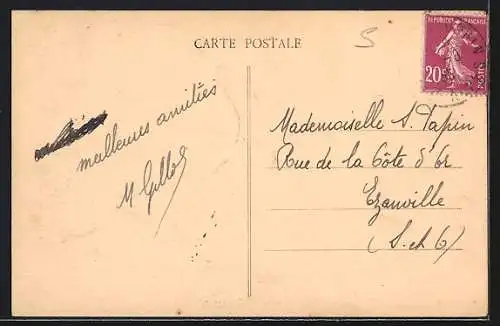 CARTE POSTALE
S
REPUBLIQUE FRANÇAISE
20c
POSTES
meilleures amitiés
Mademoiselle S. Papin
Rue de la Côte d'Or
Ezanville
(S. et O)